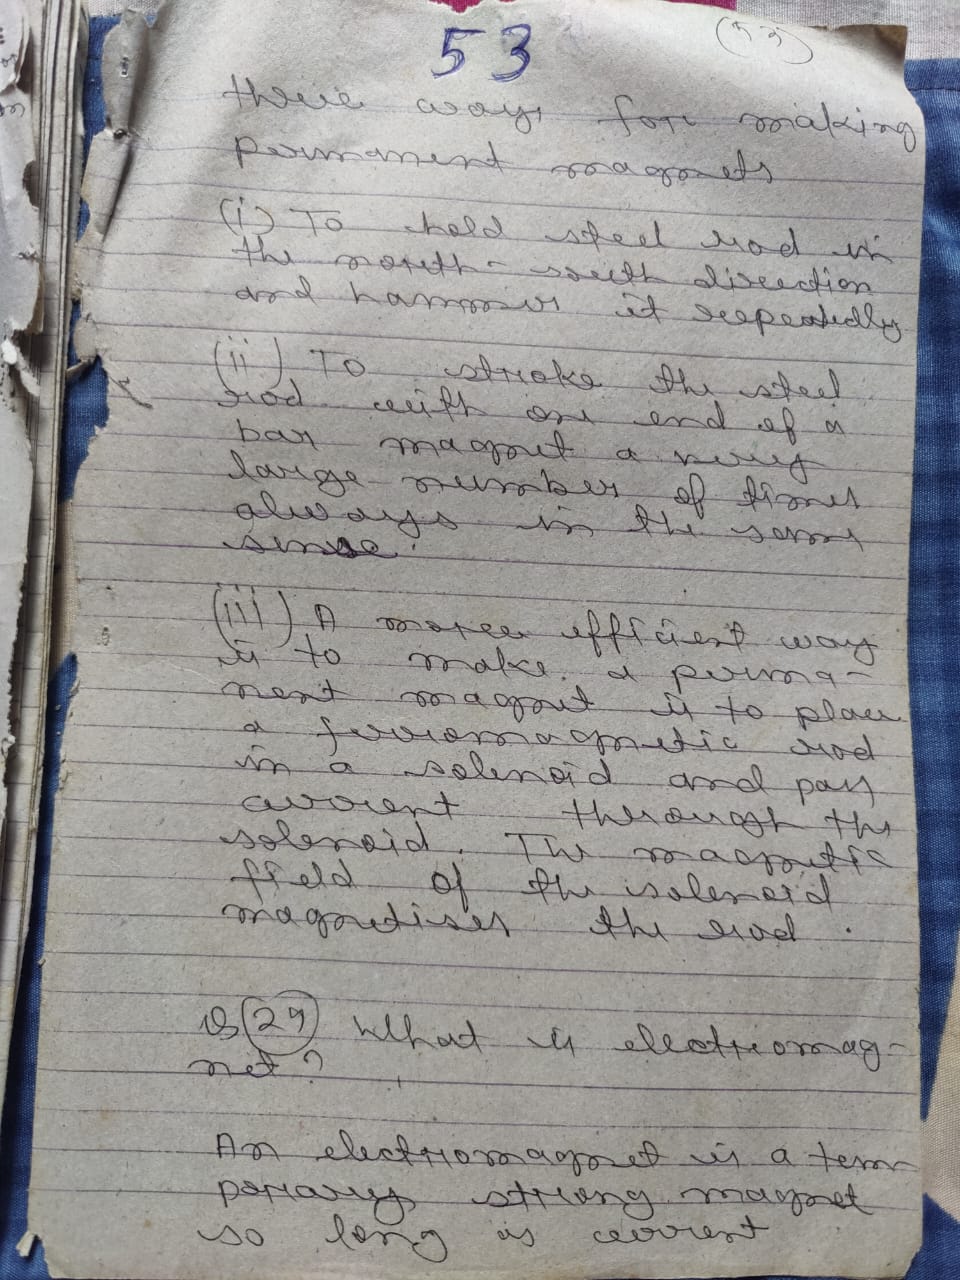 53
(53)
three ways for making
permanent magnets
(i) To hold steel rod in
the north-south direction
and hammer it repeatedly
(ii) To stroke the steel
rod with one end of a
bar magnet a very
large number of times
always in the same
sense.
(iii) A more efficient way
is to make a perma-
nent magnet is to place
a ferromagnetic rod
in a solenoid and pass
current through the
solenoid. The magnetic
field of the solenoid
magnetises the rod.
Q (29) What is electromag-
net?
An electromagnet is a tem-
porary strong magnet
so long as current